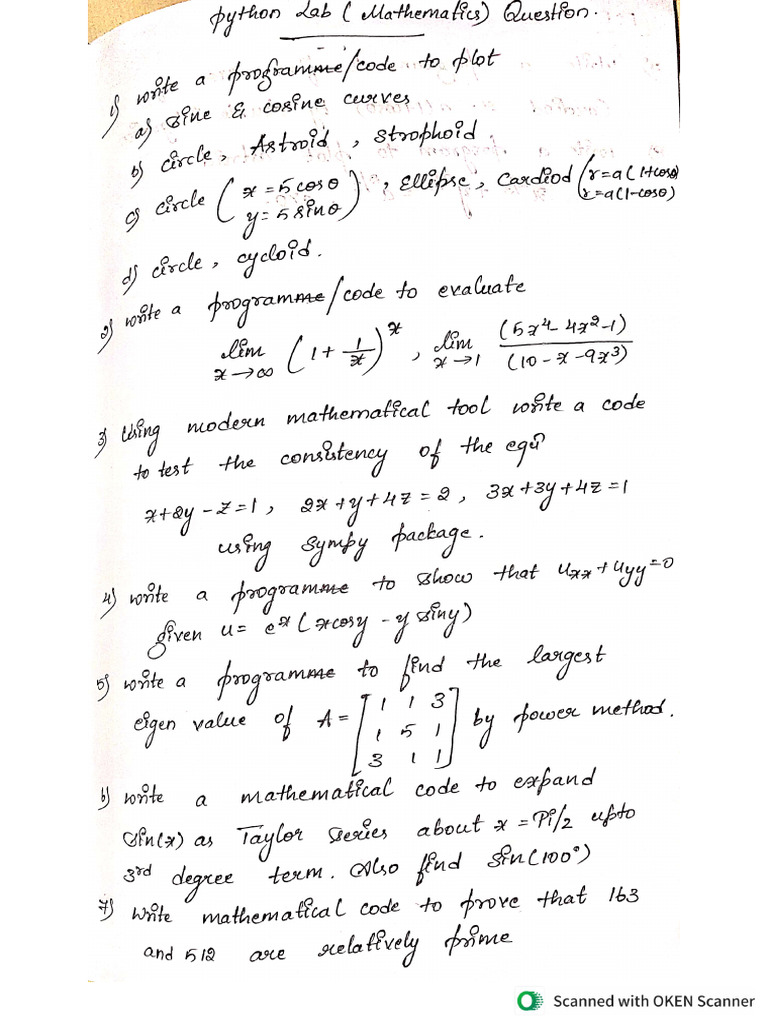 Python Lab ( Mathematics) Question.
1) write a programme/code to plot
a) sine & cosine curves
b) circle, Astroid, strophoid
c) circle ( x = 5 cosθ y = 5 sinθ ), Ellipse, Cardiod ( r = a(1+cosθ) r = a(1-cosθ)
d) circle, cycloid.
2) write a programme/code to evaluate
lim x→∞ (1 + 1/x)^x , lim x→1 (5x⁴ - 4x² - 1) / (10 - x - 9x³)
3) Using modern mathematical tool write a code
to test the consistency of the equⁿ
x+2y-z=1, 2x+y+4z=2, 3x+3y+4z=1
using Sympy package.
4) write a programme to show that uxx+uyy=0
given u= eˣ(xcosy - y siny)
5) write a programme to find the largest
eigen value of A = [1 1 3 1 5 1 3 1 1] by power method.
6) write a mathematical code to expand
Sin(x) as Taylor series about x = Pi/2 upto
3rd degree term. Also find Sin(100°)
7) Write mathematical code to prove that 163
and 512 are relatively prime
Scanned with OKEN Scanner